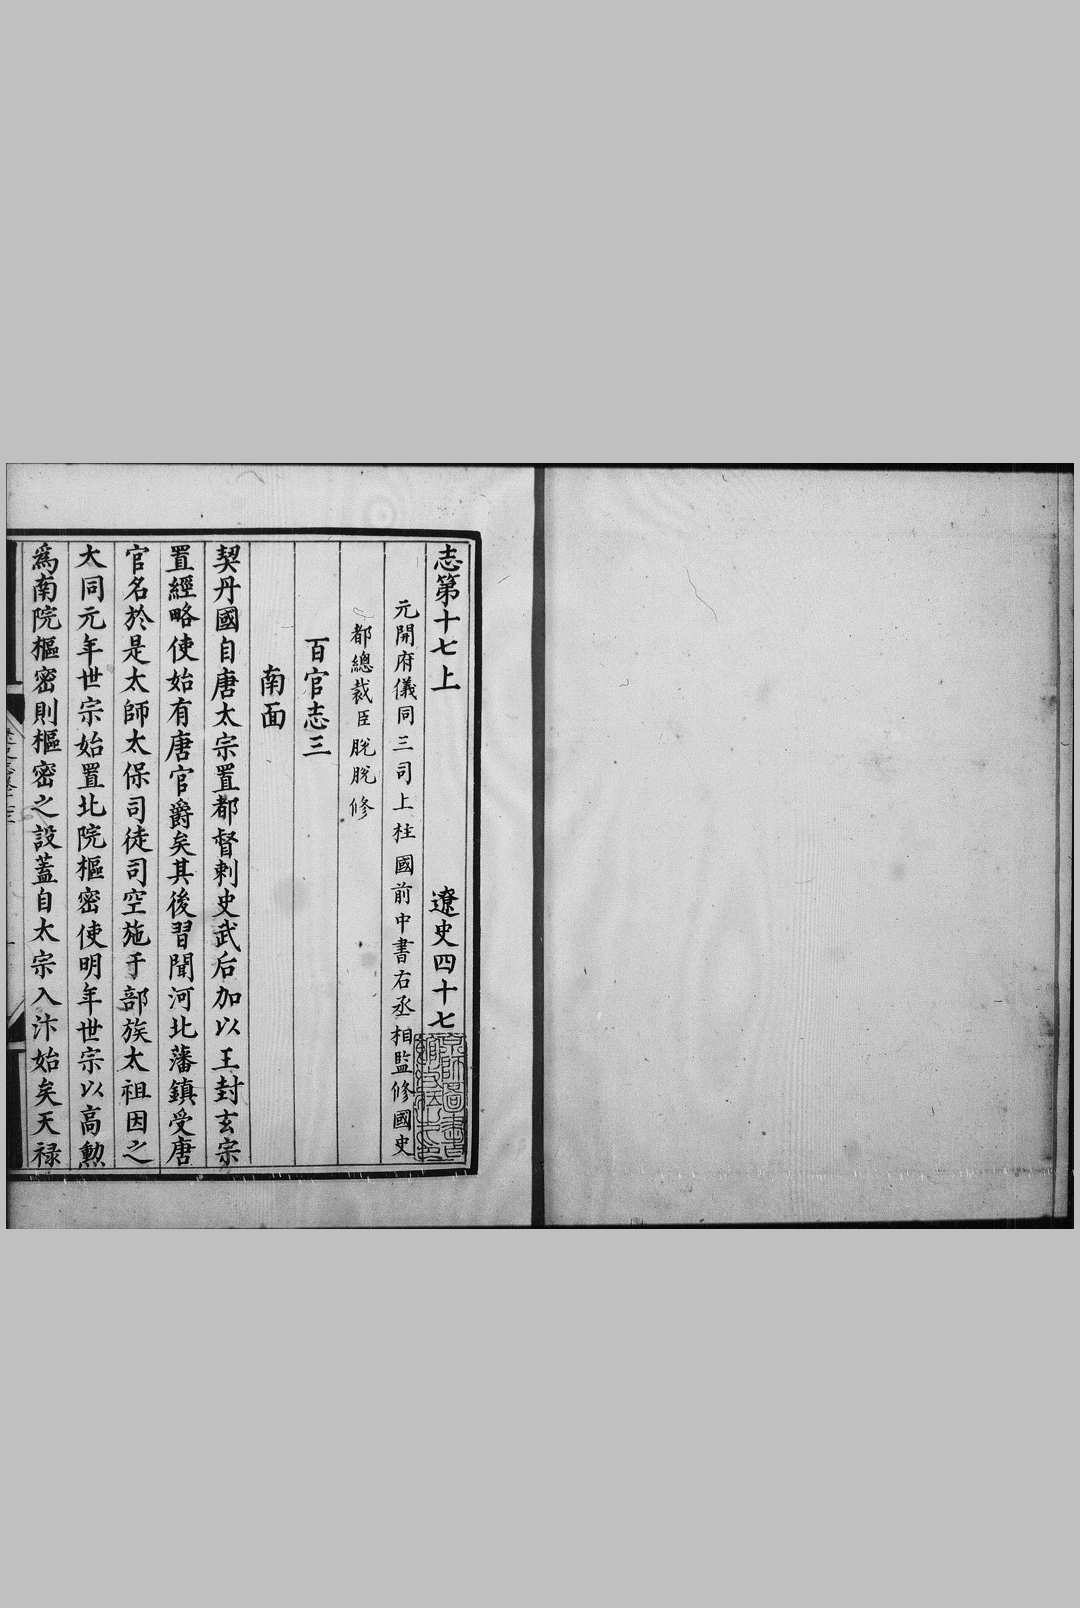 志第十七上　遼史四十七
元開府儀同三司上柱國前中書右丞相監修國史
都總裁臣脫脫修
百官志三
南面
契丹國自唐太宗置都督刺史武后加以王封玄宗
置經略使始有唐官爵矣其後習聞河北藩鎮受唐
官名於是太師太保司徒司空施于部族太祖因之
大同元年世宗始置北院樞密使明年世宗以高勲
爲南院樞密則樞密之設蓋自太宗入汴始矣天禄